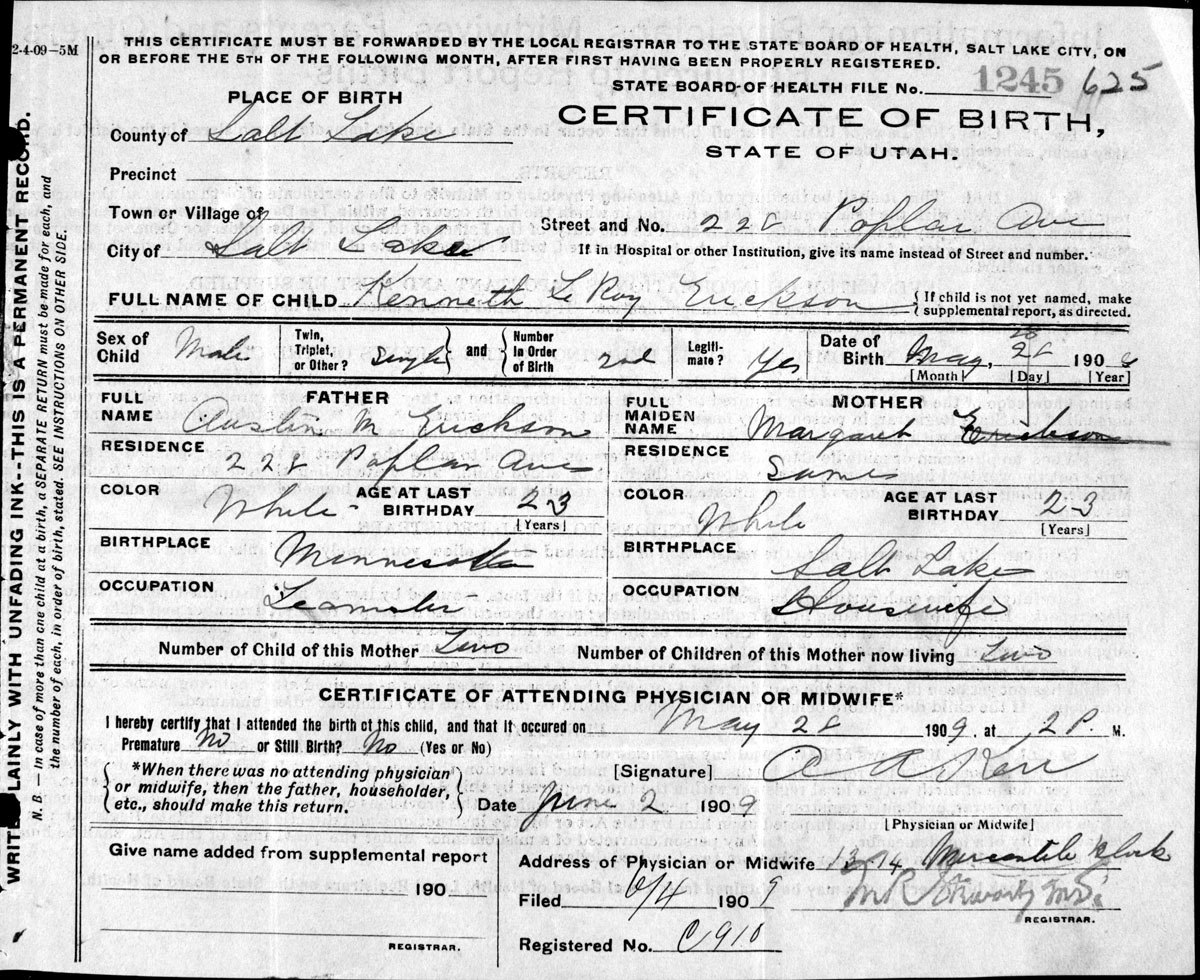 2-4-09-5M
THIS CERTIFICATE MUST BE FORWARDED BY THE LOCAL REGISTRAR TO THE STATE BOARD OF HEALTH, SALT LAKE CITY, ON
OR BEFORE THE 5TH OF THE FOLLOWING MONTH, AFTER FIRST HAVING BEEN PROPERLY REGISTERED.
STATE BOARD OF HEALTH FILE No. 1245 625
PLACE OF BIRTH
CERTIFICATE OF BIRTH,
STATE OF UTAH.
County of Salt Lake
Precinct
Town or Village of
Street and No. 228 Poplar Ave
City of Salt Lake
If in Hospital or other Institution, give its name instead of Street and number.
FULL NAME OF CHILD Kenneth Le Roy Erickson { If child is not yet named, make supplemental report, as directed.
Sex of Child Male Twin, Triplet, or Other? Single } and { Number in Order of Birth 2nd Legiti-mate? Yes Date of Birth May, 28 190
[Month] [Day] [Year]
FATHER
MOTHER
FULL NAME Austin M Erickson
FULL MAIDEN NAME Margaret Erickson
RESIDENCE 228 Poplar Ave
RESIDENCE Same
COLOR White AGE AT LAST BIRTHDAY 23 [Years]
COLOR White AGE AT LAST BIRTHDAY 23 [Years]
BIRTHPLACE Minnesota
BIRTHPLACE Salt Lake
OCCUPATION Teamster
OCCUPATION Housewife
Number of Child of this Mother Two
Number of Children of this Mother now living Two
CERTIFICATE OF ATTENDING PHYSICIAN OR MIDWIFE*
I hereby certify that I attended the birth of this child, and that it occured on May 28 1909, at 2 P. M.
Premature No or Still Birth? No (Yes or No)
{ *When there was no attending physician or midwife, then the father, householder, etc., should make this return. }
[Signature] A A Kerr
Date June 2 1909
[Physician or Midwife]
Give name added from supplemental report
190
REGISTRAR.
Address of Physician or Midwife 13-14 Mercantile Block
Filed 6/4 1909
REGISTRAR.
Registered No. C910
WRITE PLAINLY WITH UNFADING INK--THIS IS A PERMANENT RECORD.
N. B. — In case of more than one child at a birth, a SEPARATE RETURN must be made for each, and
the number of each, in order of birth, stated. SEE INSTRUCTIONS ON OTHER SIDE.